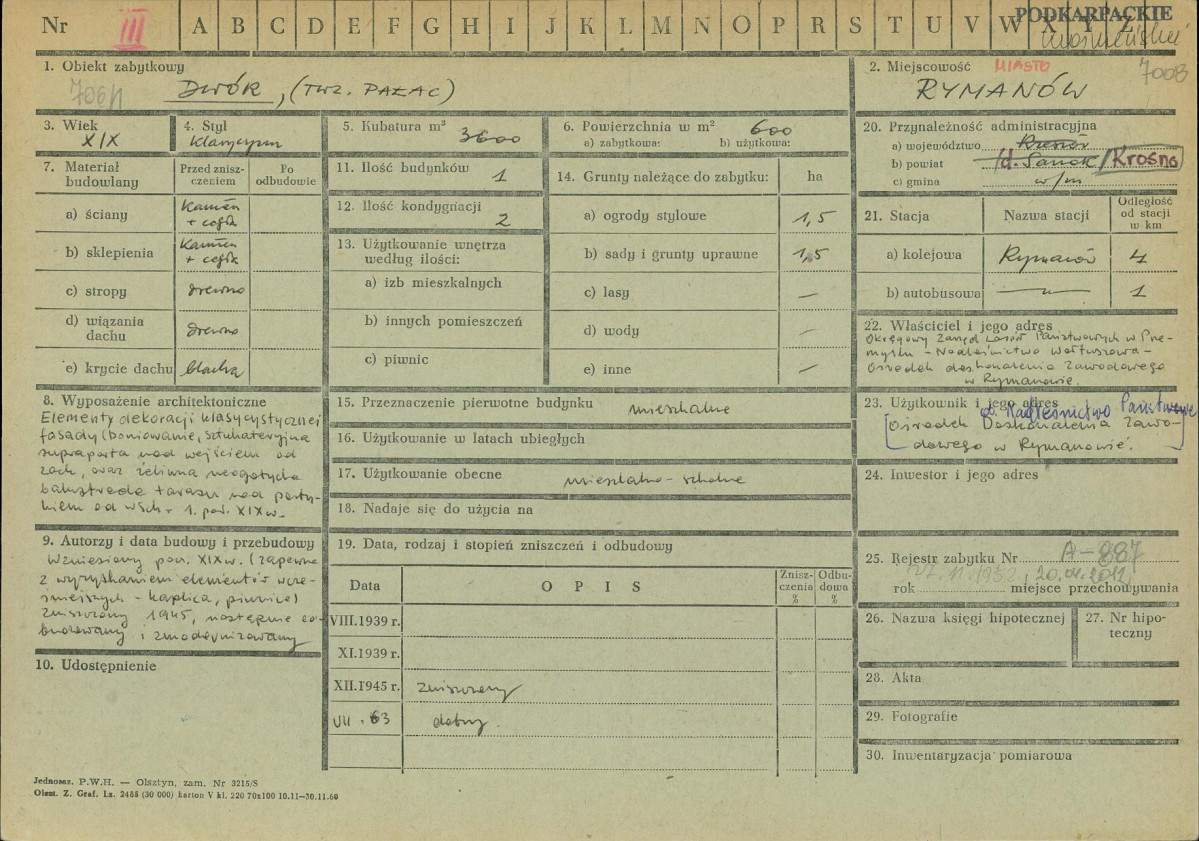 Nr III A B C D E F G H I J K L M N O P R S T U V W X Y Z
PODKARPACKIE
1. Obiekt zabytkowy
706/1 DWÓR, (TWZ. PAŁAC)
2. Miejscowość MIASTO 7008
RYMANÓW
3. Wiek
XIX
4. Styl
klasycyzm
5. Kubatura m³ 3600
6. Powierzchnia w m² 600
a) zabytkowa: b) użytkowa:
7. Materiał budowlany
Przed zniszczeniem
Po odbudowie
a) ściany Kamień + cegła
b) sklepienia Kamień + cegła
c) stropy drewno
d) wiązania dachu drewno
e) krycie dachu blacha
8. Wyposażenie architektoniczne
Elementy dekoracji klasycystycznej
fasady (boniowanie, sztukateryjna
supraporta nad wejściem od
zach, oraz żeliwna neogotycka
balustrada tarasu nad porty-
kiem od wsch - 1. poł. XIX w.
9. Autorzy i data budowy i przebudowy
Wzniesiony poł. XIX w. (zapewne
z wyzyskaniem elementów wcze-
śniejszych - kaplica, piwnice)
Zniszczony 1945, następnie od-
budowany i zmodernizowany
10. Udostępnienie
11. Ilość budynków 1
12. Ilość kondygnacji 2
13. Użytkowanie wnętrza
według ilości:
a) izb mieszkalnych
b) innych pomieszczeń
c) piwnic
14. Grunty należące do zabytku: ha
a) ogrody stylowe 1,5
b) sady i grunty uprawne 1,5
c) lasy —
d) wody —
e) inne —
15. Przeznaczenie pierwotne budynku mieszkalne
16. Użytkowanie w latach ubiegłych
17. Użytkowanie obecne mieszkalno-szkolne
18. Nadaje się do użycia na
19. Data, rodzaj i stopień zniszczeń i odbudowy
Data
OPIS
Zniszczenia %
Odbudowa %
VIII.1939 r.
XI.1939 r.
XII.1945 r. zniszczony
VII. 63 dobry.
20. Przynależność administracyjna
a) województwo
b) powiat /d. Sanok/Krosno
c) gmina w/m
21. Stacja
Nazwa stacji
Odległość od stacji w km
a) kolejowa Rymanów 4
b) autobusowa —"— 1
22. Właściciel i jego adres
Okręgowy Zarząd Lasów Państwowych w Prze-
myślu - Nadleśnictwo Wołtuszowa -
Ośrodek doskonalenia Zawodowego
w Rymanowie.
23. Użytkownik i jego adres
ob. Nadleśnictwo Państwowe
[Ośrodek Doskonalenia Zawo-
dowego w Rymanowie.
24. Inwestor i jego adres
25. Rejestr zabytku Nr A-887
1952, 20.04.2012
rok miejsce przechowywania
26. Nazwa księgi hipotecznej
27. Nr hipoteczny
28. Akta
29. Fotografie
30. Inwentaryzacja pomiarowa
Jednosz. P.W.H. — Olsztyn, zam. Nr 3215/S
Olszt. Z. Graf. Lz. 2465 (30 000) karton V kl. 220 70x100 10.11—30.11.60